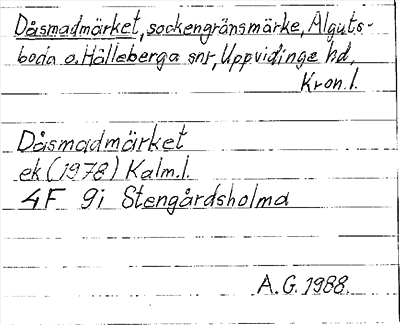 Dåsmadmärket, sockengränsmärke, Älguts-
boda o. Hälleberga snr, Uppvidinge hd,
Kron.l.
Dåsmadmärket
ek (1978) Kalm.l.
4F 9i Stengårdsholma
A.G. 1988.